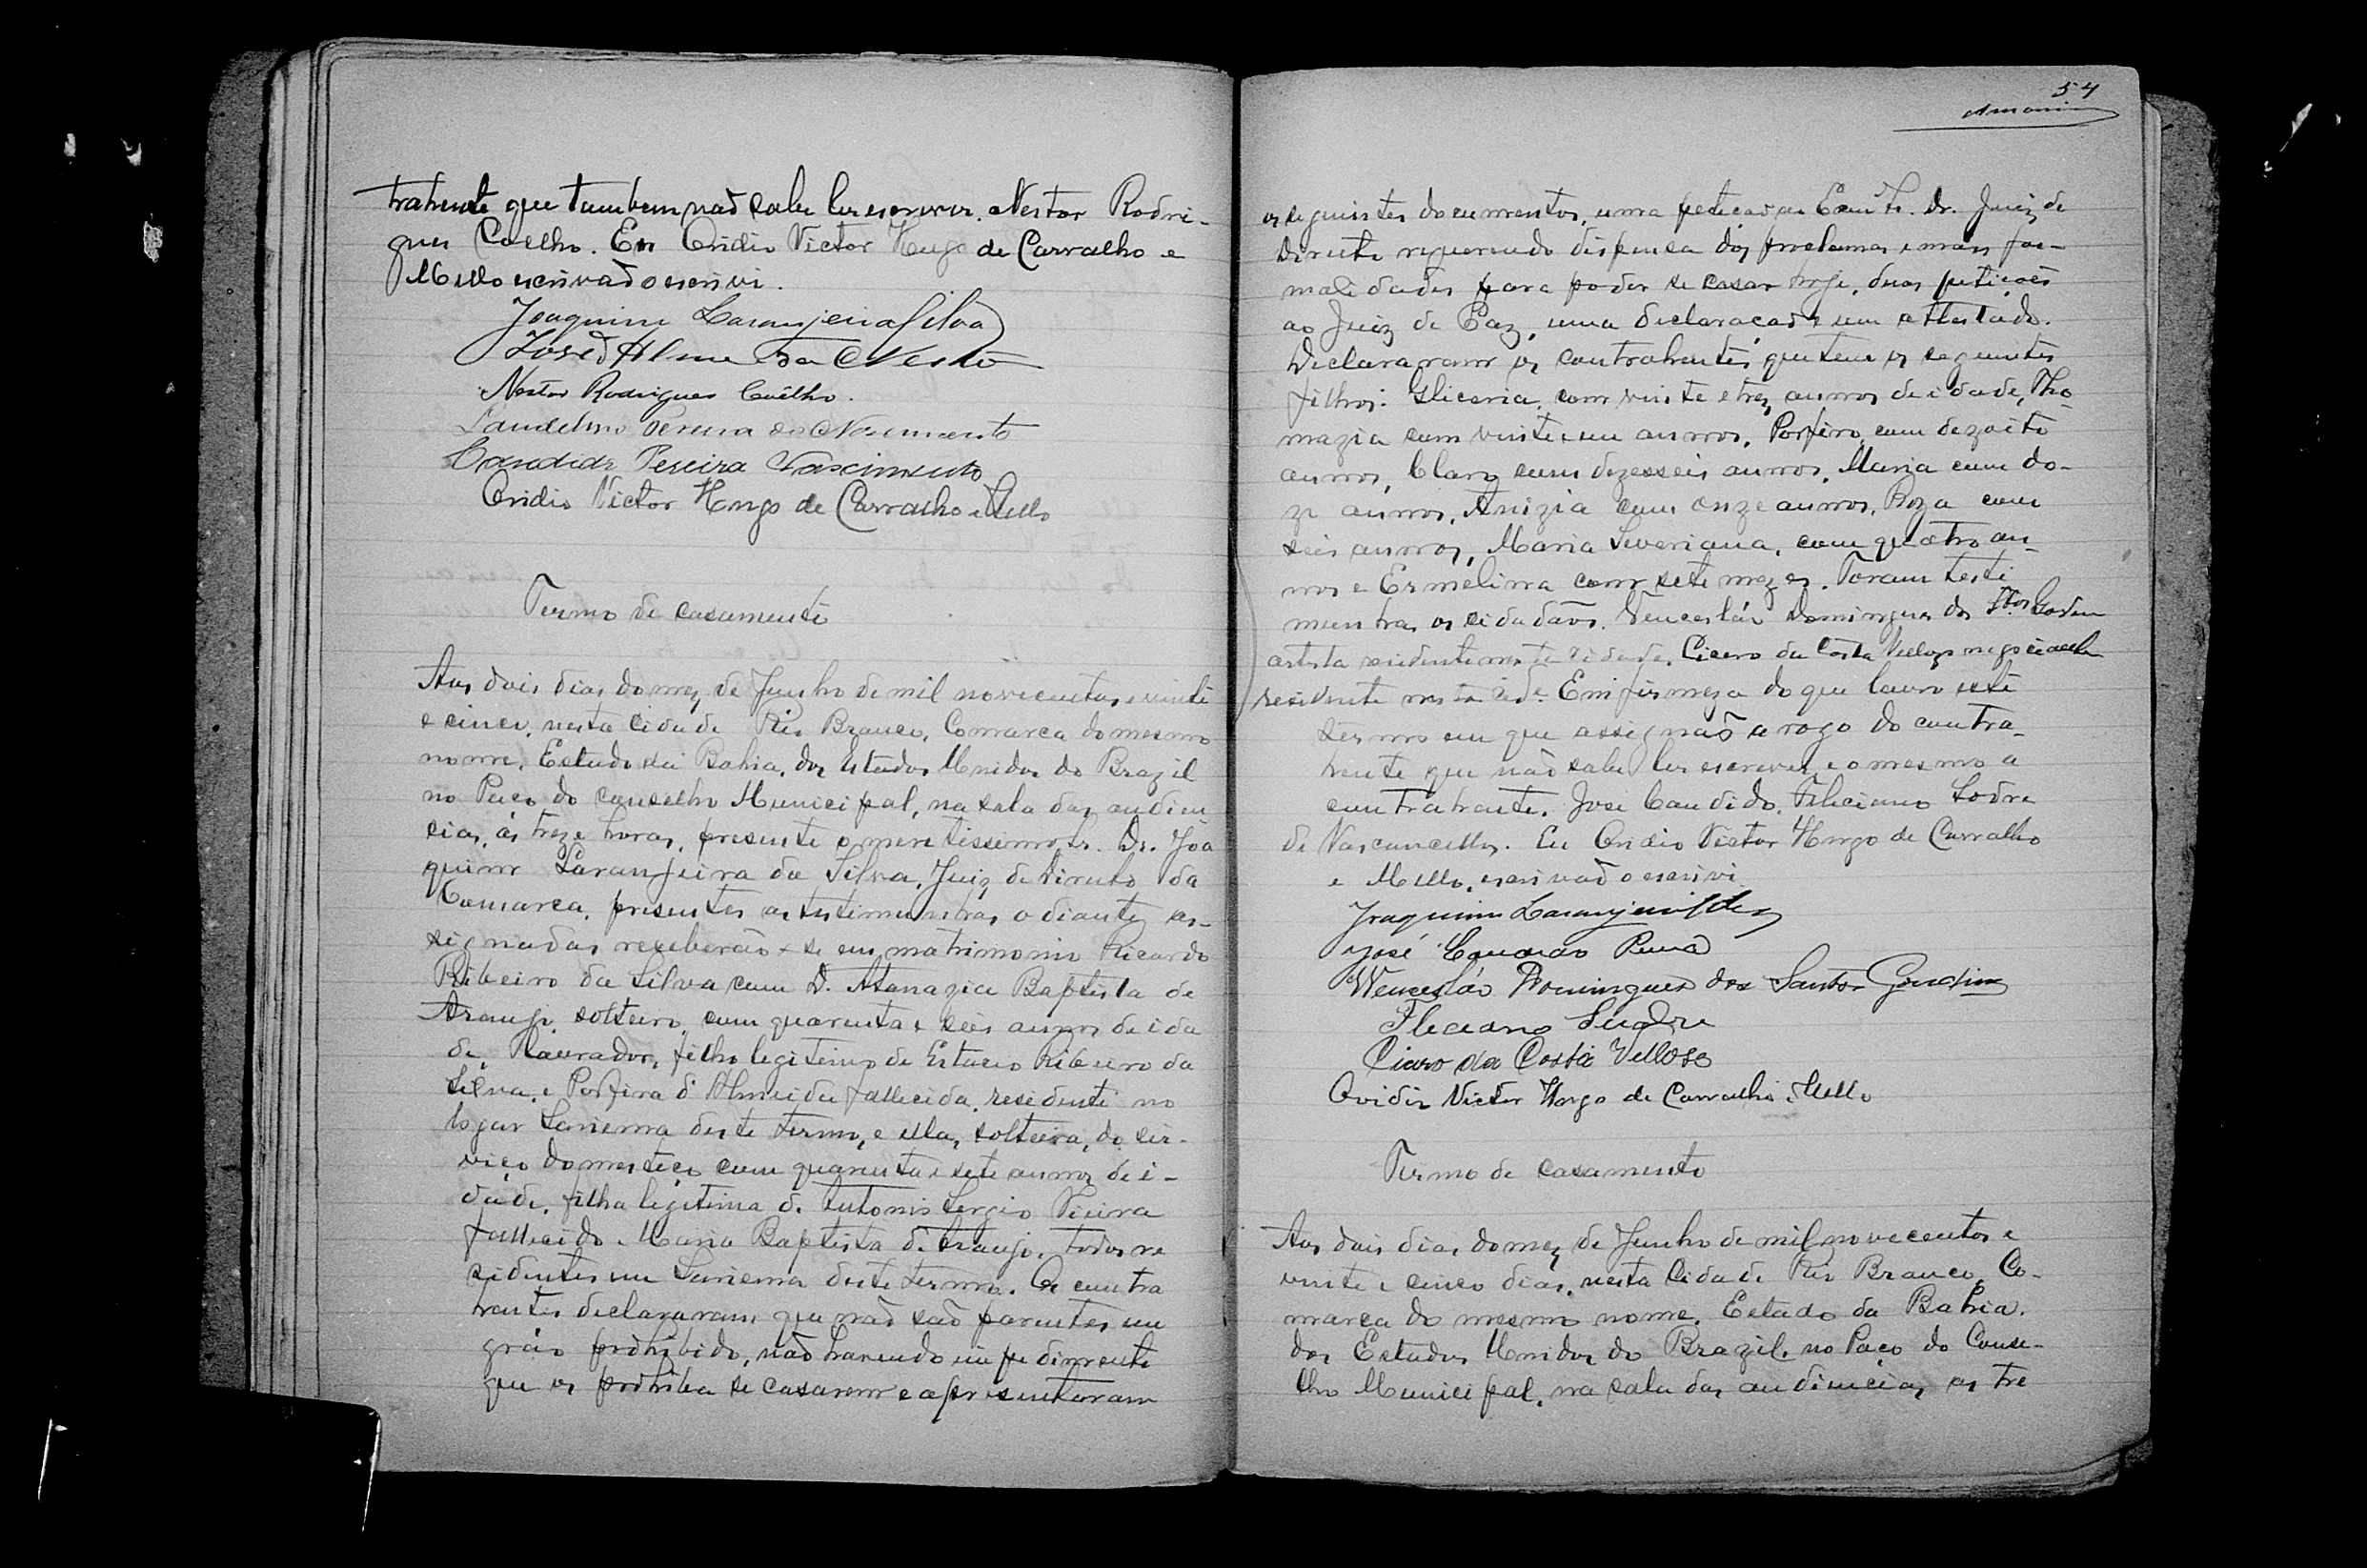 trahente que tambem não sabe ler escrever. Nestor Rodri-
gues Coelho. Eu Ovidio Victor Hugo de Carvalho e
Mello escrivão o escrivi.
Joaquim Laranjeira Silva
José d'Almeida
Nestor Rodrigues Coêlho.
Laudelino Pereira do Nascimento
Candido Pereira Nascimento
Ovidio Victor Hugo de Carvalho e Mello
Termo de casamento
Aos dois dias do mez de Junho de mil novecentos e vinte
e cinco, nesta Cidade Rio Branco, Comarca do mesmo
nome, Estado da Bahia, dos Estados Unidos do Brazil
no Paço do Conselho Municipal, na sala das audien
cias, ás treze horas, presente o meretissimo Sr. Dr. Joa
quim Laranjeira da Silva, Juiz de Direito da
Comarca, presentes as testimunhas o diante as-
signadas receberão-se em matrimonio Ricardo
Ribeiro da Silva com D. Atanazia Baptista de
Araujo, solteiro, com quarenta e seis annos de ida
de, Lavrador, filho legitimo de Estacio Ribeiro da
Silva, e Porfira d'Almeida fallecida, residente no
logar Sariema deste termo, e ella, solteira, do ser-
viço domestico com quarenta e sete annos de i-
dade, filha legitima de Antonio Sergio Vieira
fallecido e Maria Baptista de Araujo, todos re
sidentes em Sariema deste termo. Os contra
hentes declararam que não são parentes em
gráo prohibido, não havendo impedimento
que os prohiba se casarem e apresentaram
54
os seguintes documentos, uma petição ao Exmº Sr. Dr. Juiz de
Direito requerendo dispensa dos proclamas e mais for-
malidades para poder se casar hoje, duas petições
ao Juiz de Paz, uma declaração e um attestado.
Declararam os contrahentes que tem os seguintes
filhos: Gliceria, com vinte e trez annos de idade, Tho-
mazia com vinte e um annos, Porfiro, com dezoito
annos, Claro com dezesseis annos, Maria com do-
ze annos, Anizia com onze annos, Roza com
seis annos, Maria Severiana, com quatro an-
nos e Ermelina com sete mezes. Foram testi
munhas os cidadãos. Vencesláu Domingues dos Stos Gondim
artista residente nesta cidade, Cicero da Costa Velloso negociante
residente nesta cide. Em firmeza do que lavro este
termo em que assignão a rogo do contra-
hente que não sabe ler escrever, e o mesmo a
contrahente. José Candido, Feliciano Sodre
de Vasconcellos. Eu Ovidio Victor Hugo de Carvalho
e Mello, escrivão o escrivi
Joaquim Laranjeira Silva
José
Wenceslão Domingues dos Santos Gondim
Feleciano Sudre
Cicero da Costa Velloso
Ovidio Victor Hugo de Carvalho e Mello
Termo de casamento
Aos dois dias do mez de Junho de mil novecentos e
vinte e cinco dias, nesta Cidade Rio Branco, Co-
marca do mesmo nome, Estado da Bahia.
dos Estados Unidos do Brazil, no Paço do Conse-
lho Municipal, na sala das audiencias, as tre